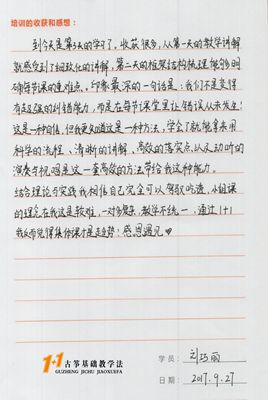 培训的收获和感想：
到今天是第5天的学习了，收获很多，从第一天的教学讲解
就感受到了细致化的讲解，第二天的框架结构梳理能够明
确每节课的重难点。印象最深的一句话是：我们不是变得
有超强的纠错能力，而是在每节课堂里让错误从未发生！
这是一种自信，但我更知道这是一种方法，学会了就能拿来用
科学的流程、清晰的讲解、高效的落实点以及动听的
演奏与视唱是这一套高效的方法带给我这种能力。
结合理论与实践我相信自己完全可以驾驭吃透，小组课
的理论在我这是较难，一对多复杂，教学不统一，通过1+1
我反而觉得集体课才是走趋势！感恩遇见♥
1+1 古筝基础教学法
GUZHENG JICHU JIAOXUEFA
学员：刘巧丽
日期：2017.9.27